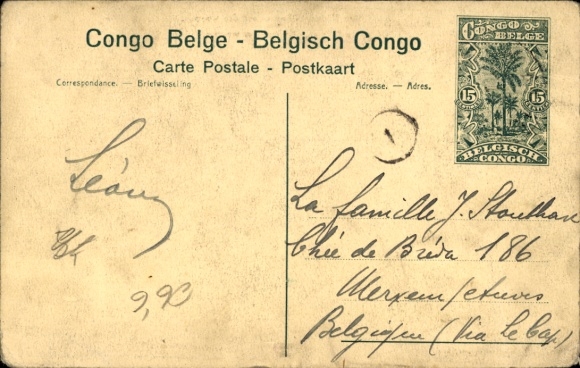 Congo Belge - Belgisch Congo
Carte Postale - Postkaart
Correspondance. — Briefwisseling
Adresse. — Adres.
CONGO BELGE
15 15
BELGISCH CONGO
1
Léon
9,90
La famille J. Stouthan
Chée de Bréda 186
Merxem / Anvers
Belgique (Via Le Cap)